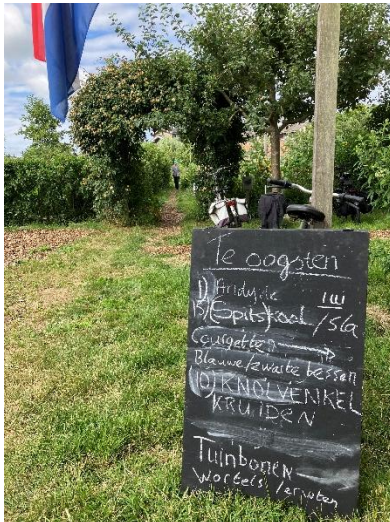 Te oogsten
1)
15) (Spits)kool / Sla
Courgetten
Blauwe/zwarte bessen
(10) KNOLVENKEL
KRUIDEN
Tuinbonen
Wortels / erwten